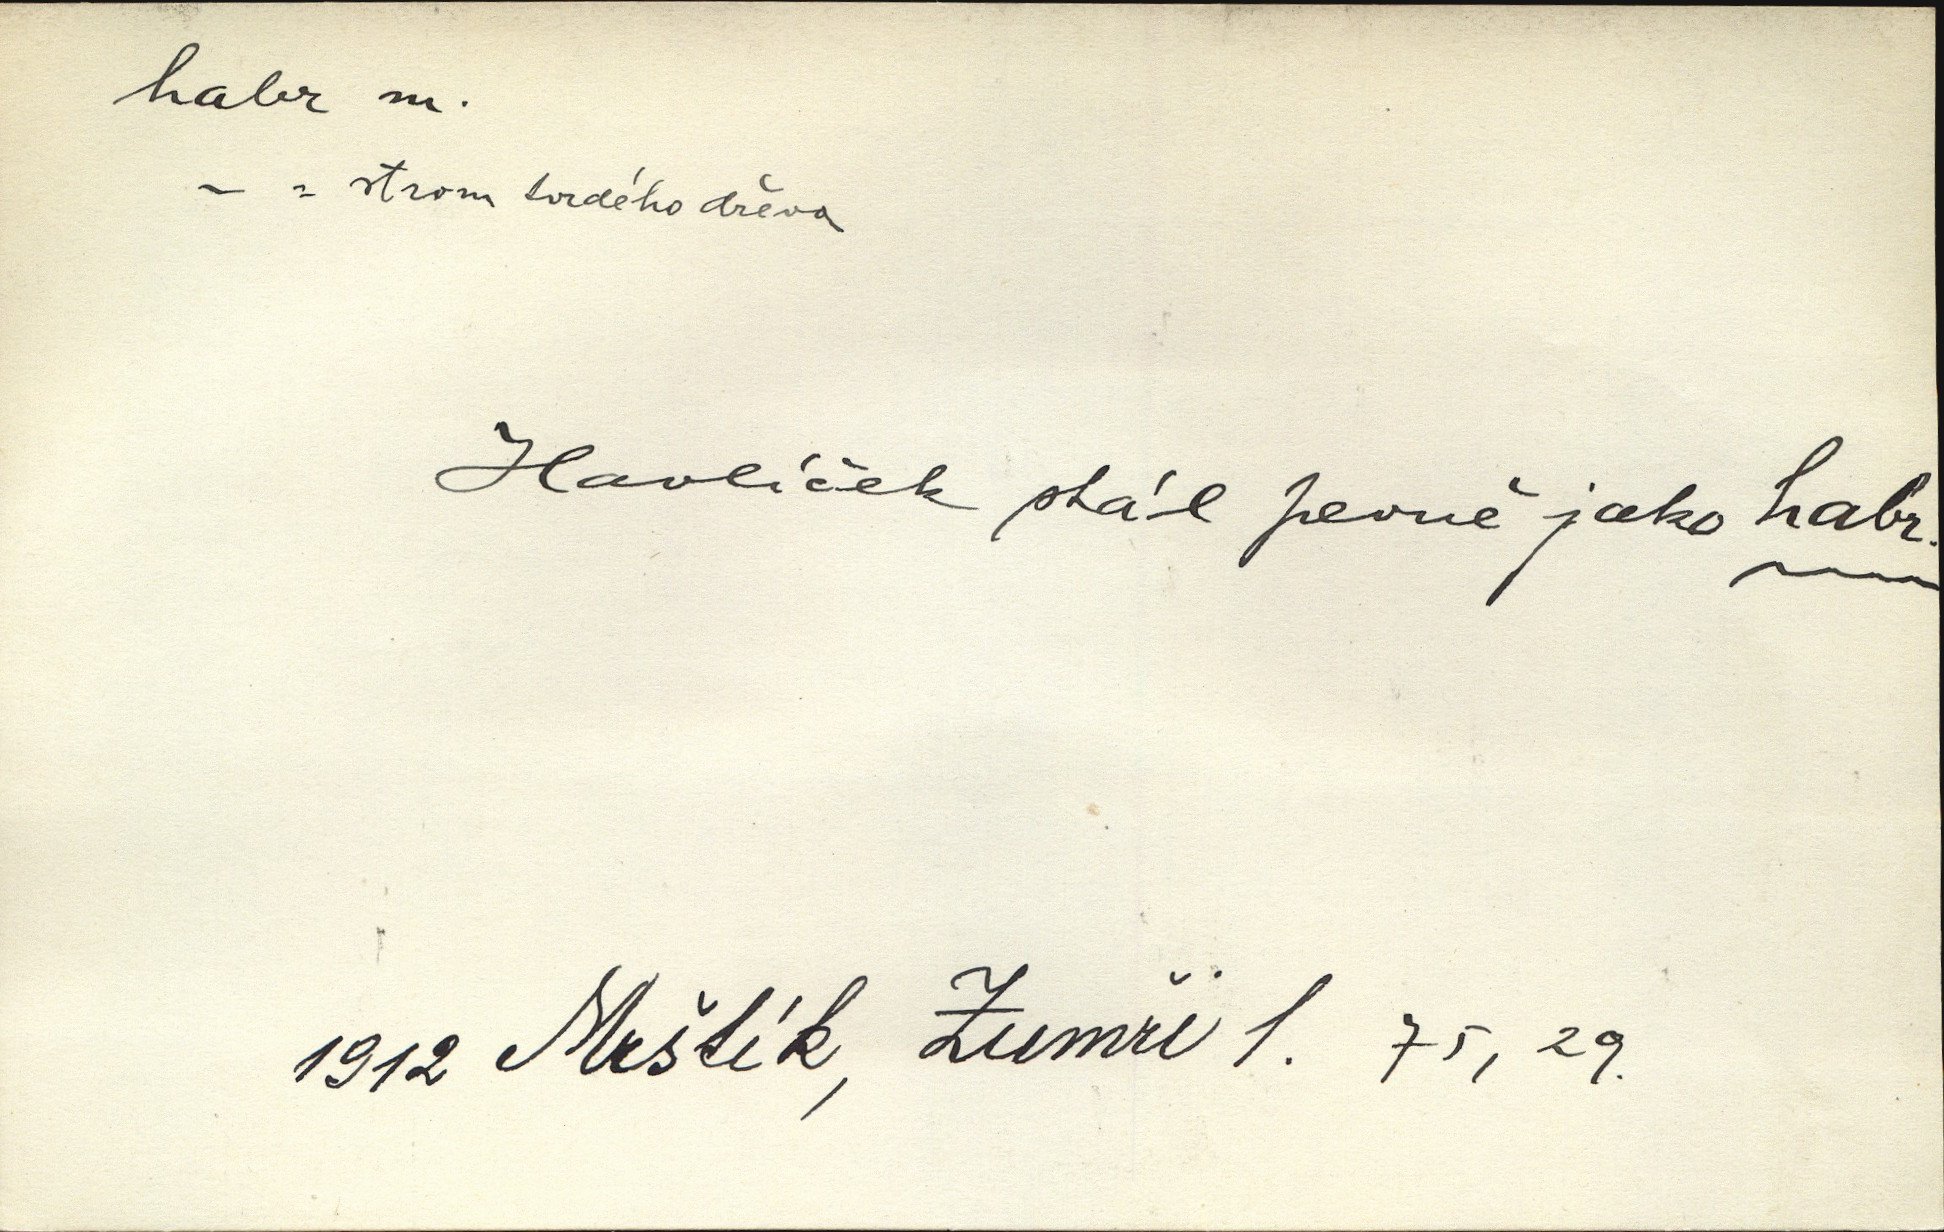 habr m.
~ = strom tvrdého dřeva
Havlíček stál pevně jako habr.
1912 Mrštík, Zumři I. 75, 29.